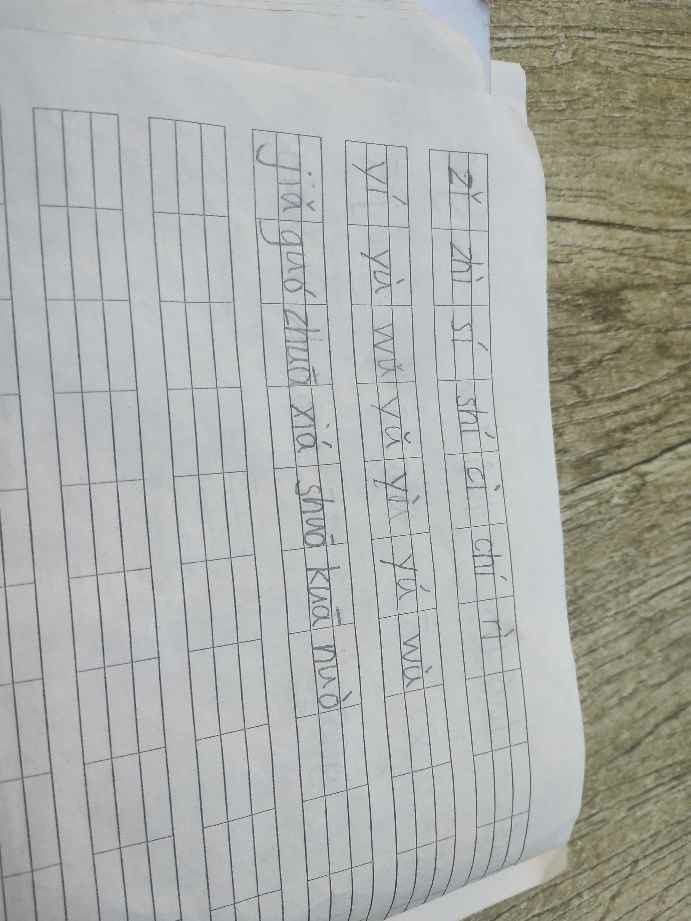 zǐ zhì sí shí cì chí rì
yí yù wǔ yǔ yì yú wù
jiǎ guó zhuō xiá shuó kuā nuò